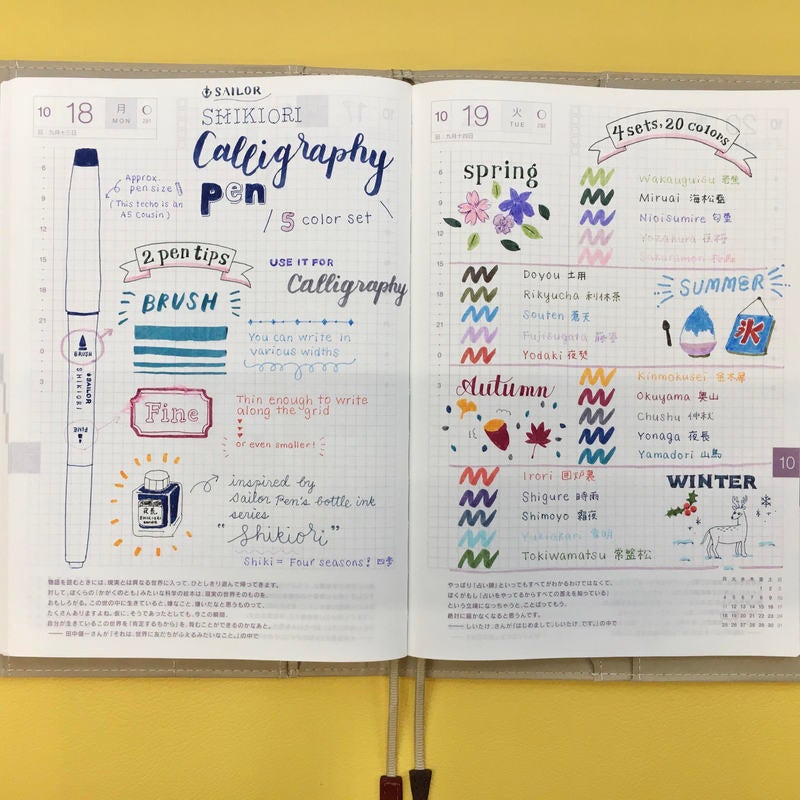 10 18 月
MON
旧:九月十三日
SAILOR
SHIKIORI
Calligraphy
pen
5 color set
Approx.
pen size
(This techo is an
A5 cousin)
2 pen tips
BRUSH
USE IT FOR
Calligraphy
You can write in
various widths
BRUSH
SAILOR
SHIKIORI
FINE
Fine
Thin enough to write
along the grid
or even smaller!
inspired by
Sailor Pen's bottle ink
series
"Shikiori"
Shiki = Four seasons! 四季
6
9
12
15
18
21
0
3
物語を読むときには、現実とは異なる世界に入って、ひとしきり遊んで帰ってきます。
対して、ぼくらの「かがくのとも」みたいな科学の絵本は、現実の世界そのものを、
おもしろがる。この世の中に生きていると、嫌なこと、憎いだなと思うものって、
たくさんありますよね。仮に、そうであったとしても、今この瞬間、
自分が生きているこの世界を「肯定するちから」を、育むことができるのかなあと。
10 19 火
TUE
旧:九月十四日
4 sets, 20 colors
spring
Wakauguisu 若鶯
Miruai 海松藍
Nioisumire 匂菫
Yozakura 夜桜
Sakuramori 桜森
Doyou 土用
Rikyucha 利休茶
Souten 蒼天
Fujisugata 藤姿
Yodaki 夜焚
SUMMER
氷
Autumn
Kinmokusei 金木犀
Okuyama 奥山
Chushu 仲秋
Yonaga 夜長
Yamadori 山鳥
10
Irori 囲炉裏
Shigure 時雨
Shimoyo 霜夜
Yukiakari 雪明
Tokiwamatsu 常盤松
WINTER
やっぱり「占い師」といってもすべてがわかるわけではなくて、
ぼくがもし「占いをやってるからすべての答えを知っている」
という立場になっちゃうと、ことばってもう、
絶対に届かなくなると思うんです。
—— しいたけ.さんが『はじめまして、しいたけ.です。』の中で